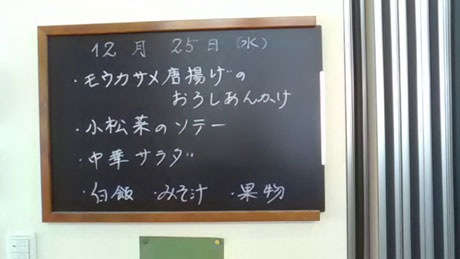 12月 25日 (水)
・モウカサメ唐揚げの
おろしあんかけ
・小松菜のソテー
・中華サラダ
・白飯 ・みそ汁 ・果物